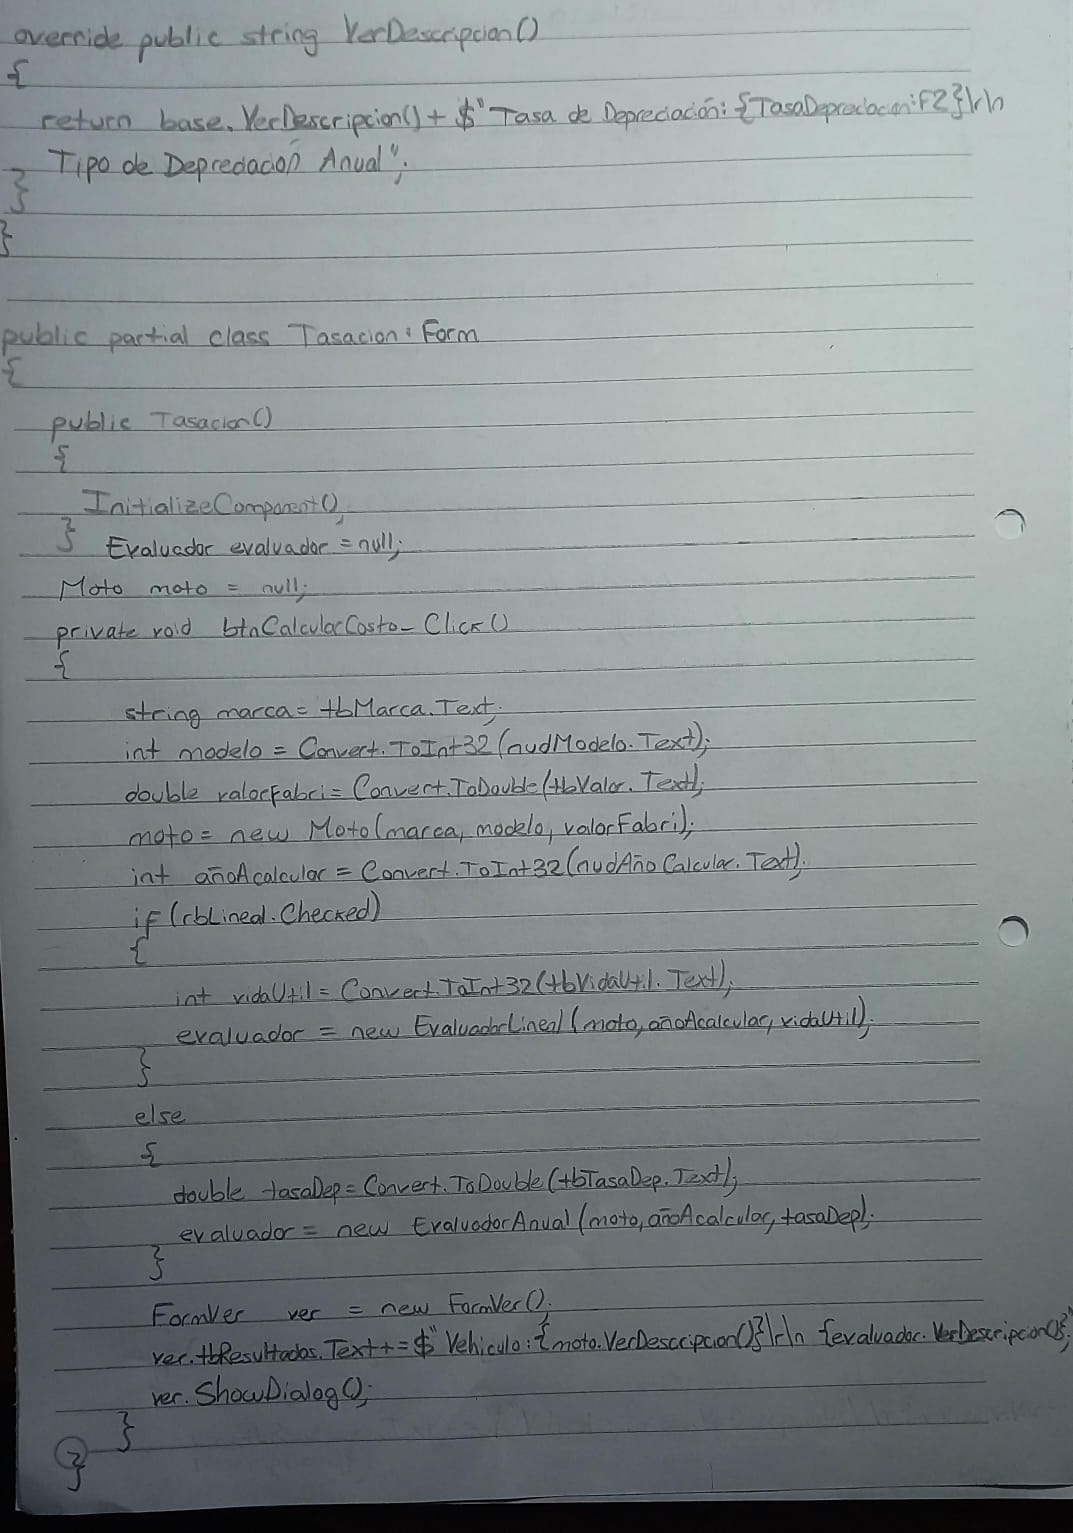 override public string VerDescripcion()
{
return base.VerDescripcion() + $"Tasa de Depreciación: {TasaDepreciacion:F2}\r\n
Tipo de Depreciación Anual";
}
}
public partial class Tasacion: Form
{
public Tasacion()
{
InitializeComponent();
} Evaluador evaluador = null;
Moto moto = null;
private void btnCalcularCosto_Click()
{
string marca = tbMarca.Text;
int modelo = Convert.ToInt32(nudModelo.Text);
double valorFabri = Convert.ToDouble(tbValor.Text);
moto = new Moto(marca, modelo, valorFabri);
int añoAcalcular = Convert.ToInt32(nudAñoCalcular.Text);
if(rbLineal.Checked)
{
int vidaUtil = Convert.ToInt32(tbVidaUtil.Text);
evaluador = new EvaluadorLineal(moto, añoAcalcular, vidaUtil);
}
else
{
double tasaDep = Convert.ToDouble(tbTasaDep.Text);
evaluador = new EvaluadorAnual(moto, añoAcalcular, tasaDep);
}
FormVer ver = new FormVer();
ver.tbResultados.Text += $"Vehiculo: {moto.VerDescripcion()}\r\n {evaluador.VerDescripcion()}";
ver.ShowDialog();
}
}